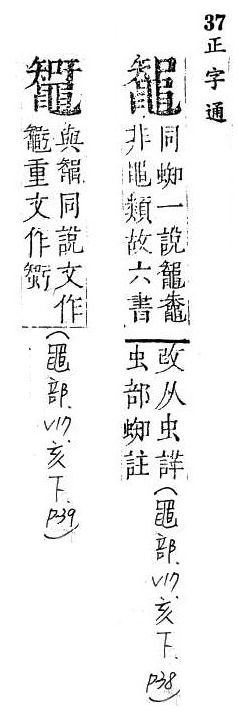 37 正字通
䵹
同蜘一說䵹鼄
非黽類故六書
改从虫詳
虫部蜘註
(黽部. V17 亥下. p38)
鼅
與䵹同說文作
重文作
(黽部. V17 亥下. p39)